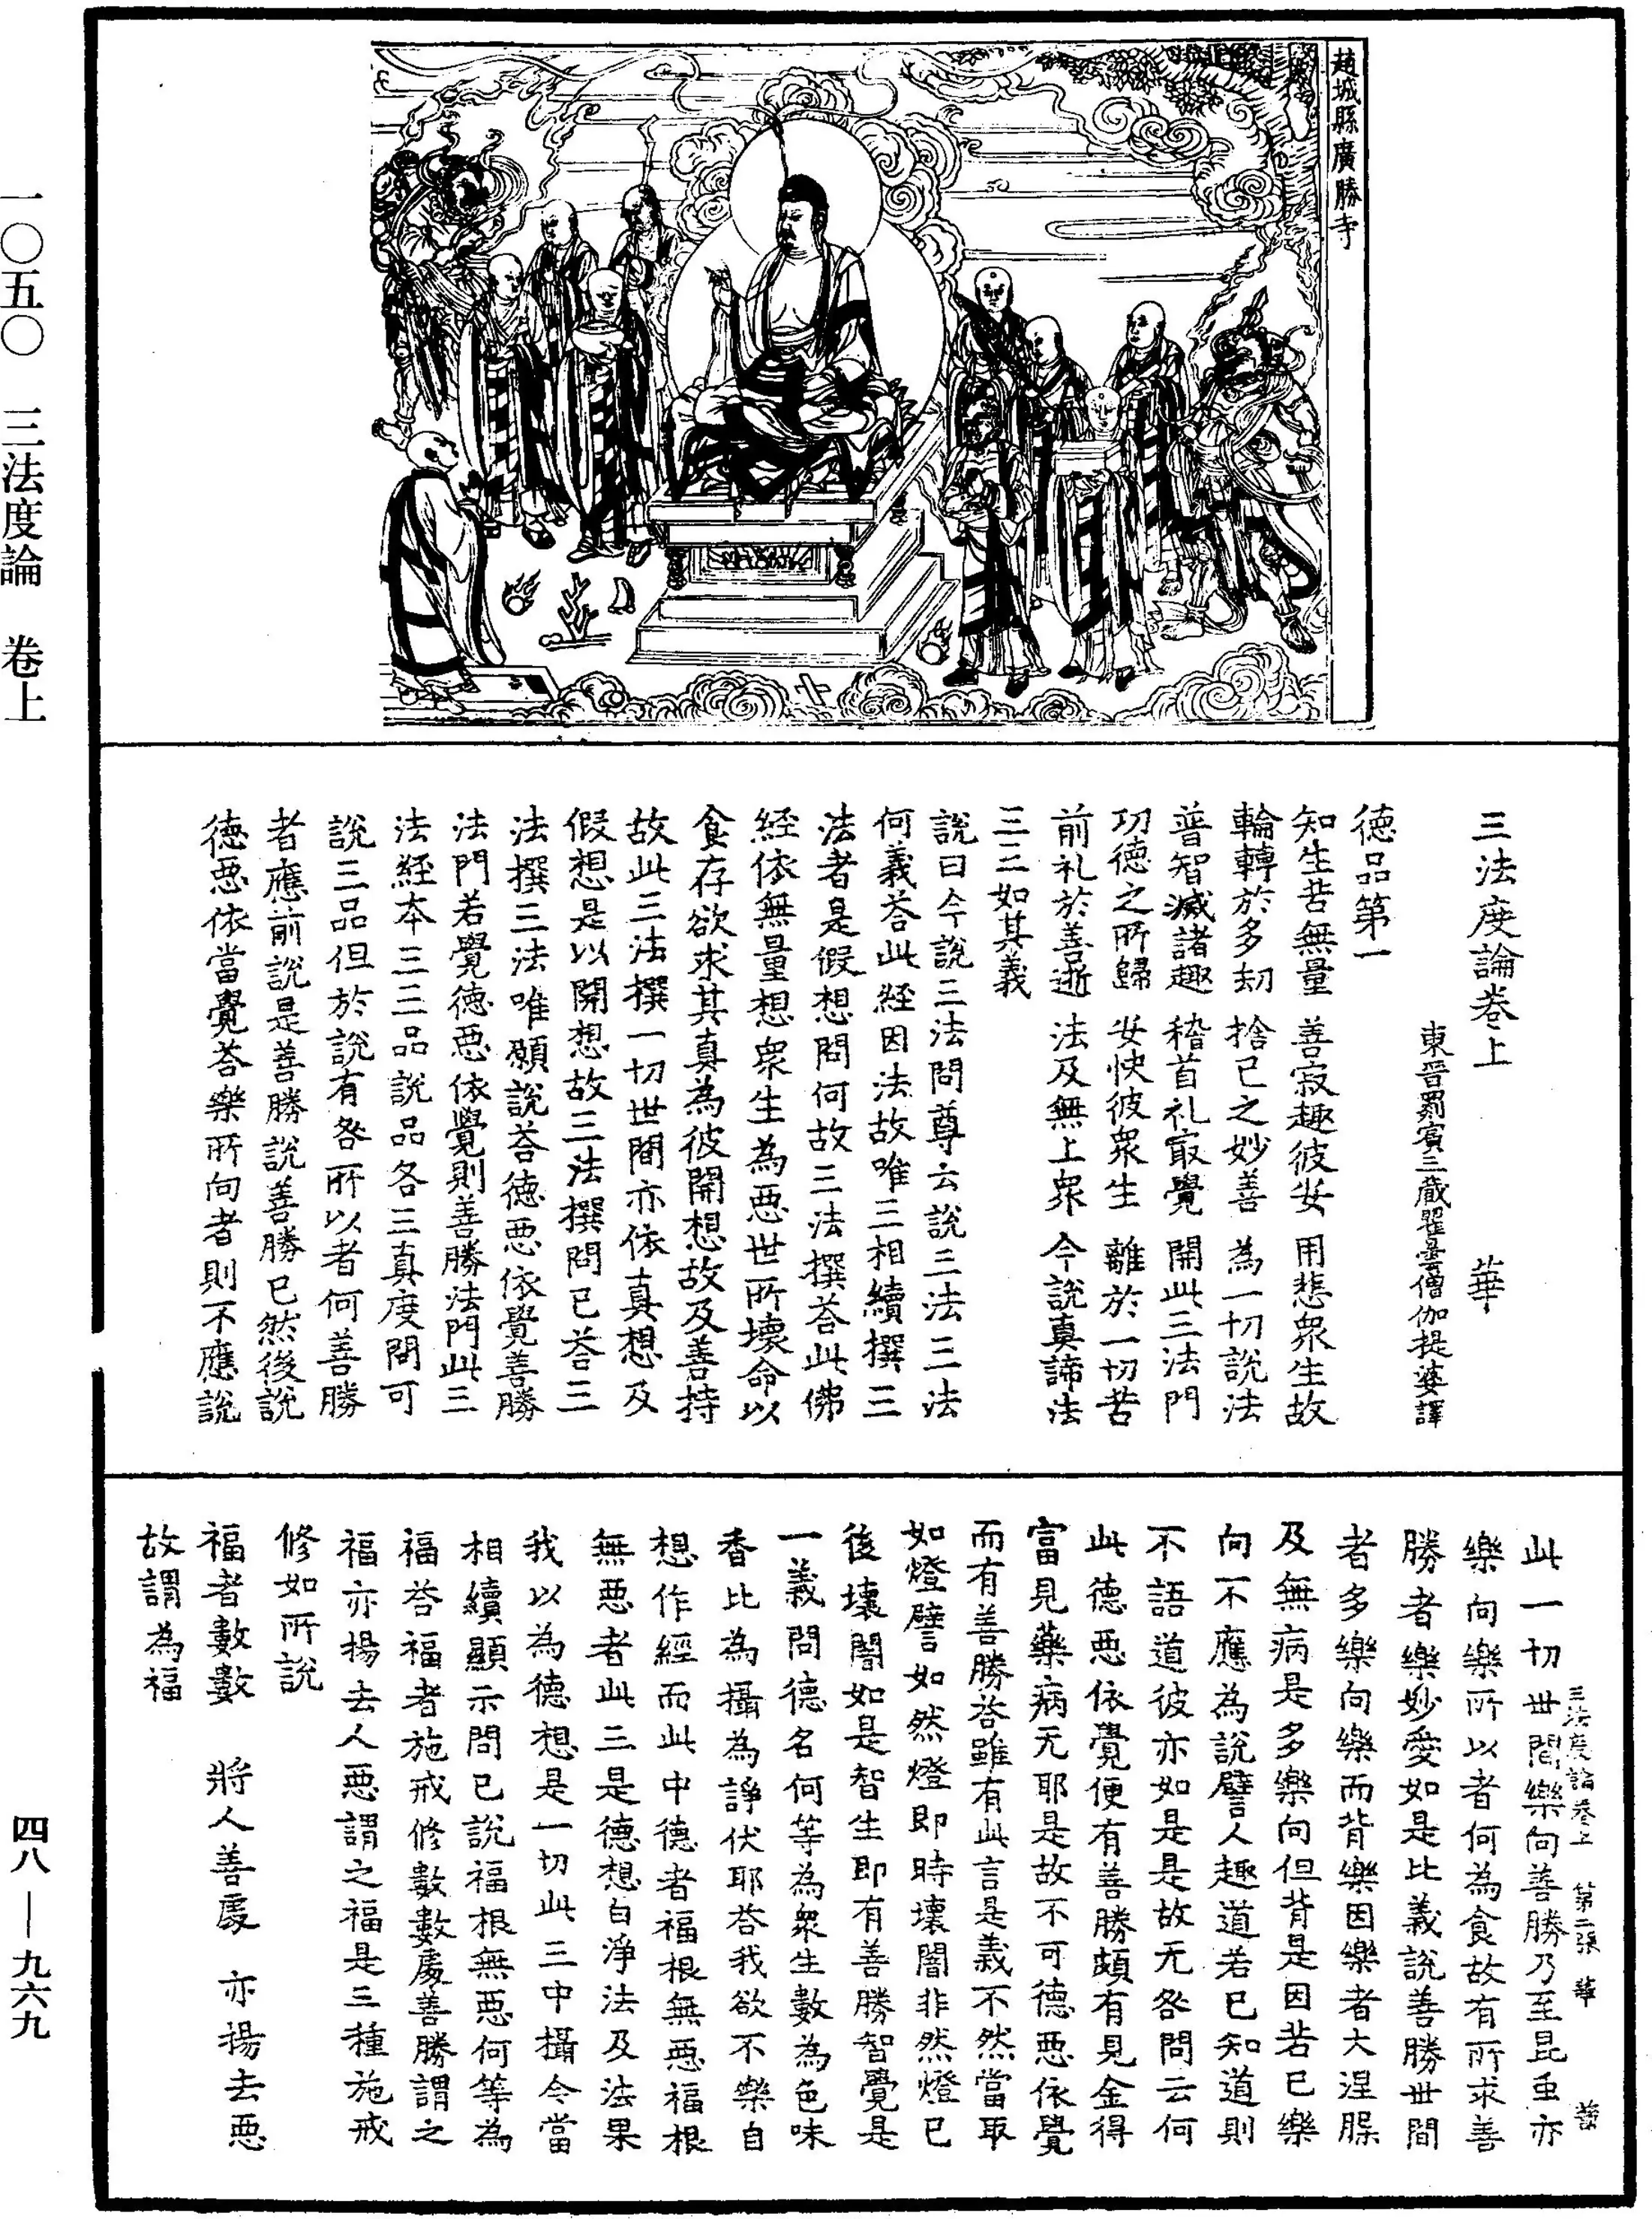 趙城縣廣勝寺
三法度論卷上　華
東晉罽賓三藏瞿曇僧伽提婆譯
德品第一
知生苦無量　善寂趣彼安　用悲衆生故
輪轉於多劫　捨已之妙善　為一切說法
普智滅諸趣　稽首礼㝡覺　開此三法門
功德之所歸　安快彼衆生　離於一切苦
前礼於善逝　法及無上衆　今說真諦法
三三如其義
說曰今說三法問尊云說三法三法
何義荅此經因法故唯三相續撰三
法者是假想問何故三法撰荅此佛
經依無量想衆生為惡世所壞命以
食存欲求其真為彼開想故及善持
故此三法撰一切世間亦依真想及
假想是以開想故三法撰問已荅三
法撰三法唯願說荅德惡依覺善勝
法門若覺德惡依覺則善勝法門此三
法經本三三品說品各三真度問可
說三品但於說有咎所以者何善勝
者應前說是善勝說善勝已然後說
德惡依當覺荅樂所向者則不應說
三法度論卷上　第二張　華
此一切世間樂向善勝乃至昆虫亦
樂向樂所以者何為食故有所求善
勝者樂妙愛如是比義說善勝世間
者多樂向樂而背樂因樂者大涅槃
及無病是多樂向但背是因若已樂
向不應為說譬人趣道若已知道則
不語道彼亦如是是故无咎問云何
此德惡依覺便有善勝頗有見金得
富見藥病无耶是故不可德惡依覺
而有善勝荅雖有此言是義不然當取
如燈譬如然燈即時壞闇非然燈已
後壞闇如是智生即有善勝智覺是
一義問德名何等為衆生數為色味
香比為攝為諍伏耶荅我欲不樂自
想作經而此中德者福根無惡福根
無惡者此三是德想白淨法及法果
我以為德想是一切此三中攝今當
相續顯示問已說福根無惡何等為
福荅福者施戒修數數處善勝謂之
福亦揚去人惡謂之福是三種施戒
修如所說
福者數數　將人善處　亦揚去惡
故謂為福
一〇五〇　三法度論　卷上
四八—九六九